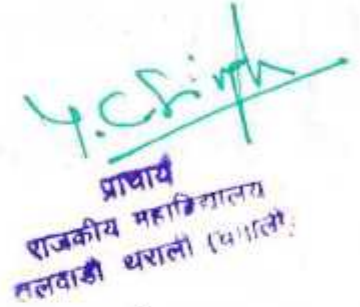 Y.C Singh
प्राचार्य
राजकीय महाविद्यालय
तलवाड़ी थराली (चमोली)